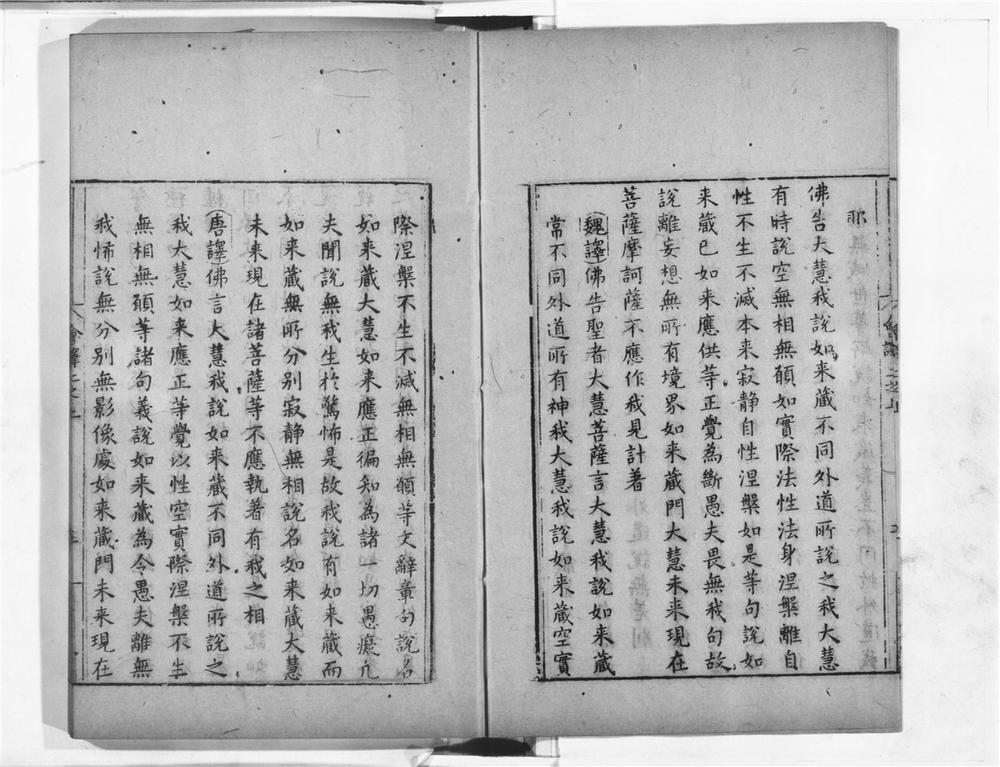 耶
佛告大慧我說如来藏不同外道所說之我大慧
有時說空無相無願如實際法性法身涅槃離自
性不生不滅本来寂静自性涅槃如是等句說如
来藏已如来應供等正覺為斷愚夫畏無我句故
說離妄想無所有境界如来藏門大慧未来現在
菩薩摩訶薩不應作我見計著
魏譯佛告聖者大慧菩薩言大慧我說如来藏
常不同外道所有神我大慧我說如来藏空實
際涅槃不生不滅無相無願等文辭章句說名
如来藏大慧如来應正徧知為諸一切愚癡凢
夫聞說無我生於驚怖是故我說有如来藏而
如来藏無所分别寂静無相說名如来藏大慧
未来現在諸菩薩等不應執著有我之相
唐譯佛言大慧我說如来藏不同外道所說之
我大慧如来應正等覺以性空實際涅槃不生
無相無願等諸句義說如来藏為令愚夫離無
我怖說無分别無影像處如来藏門未来現在